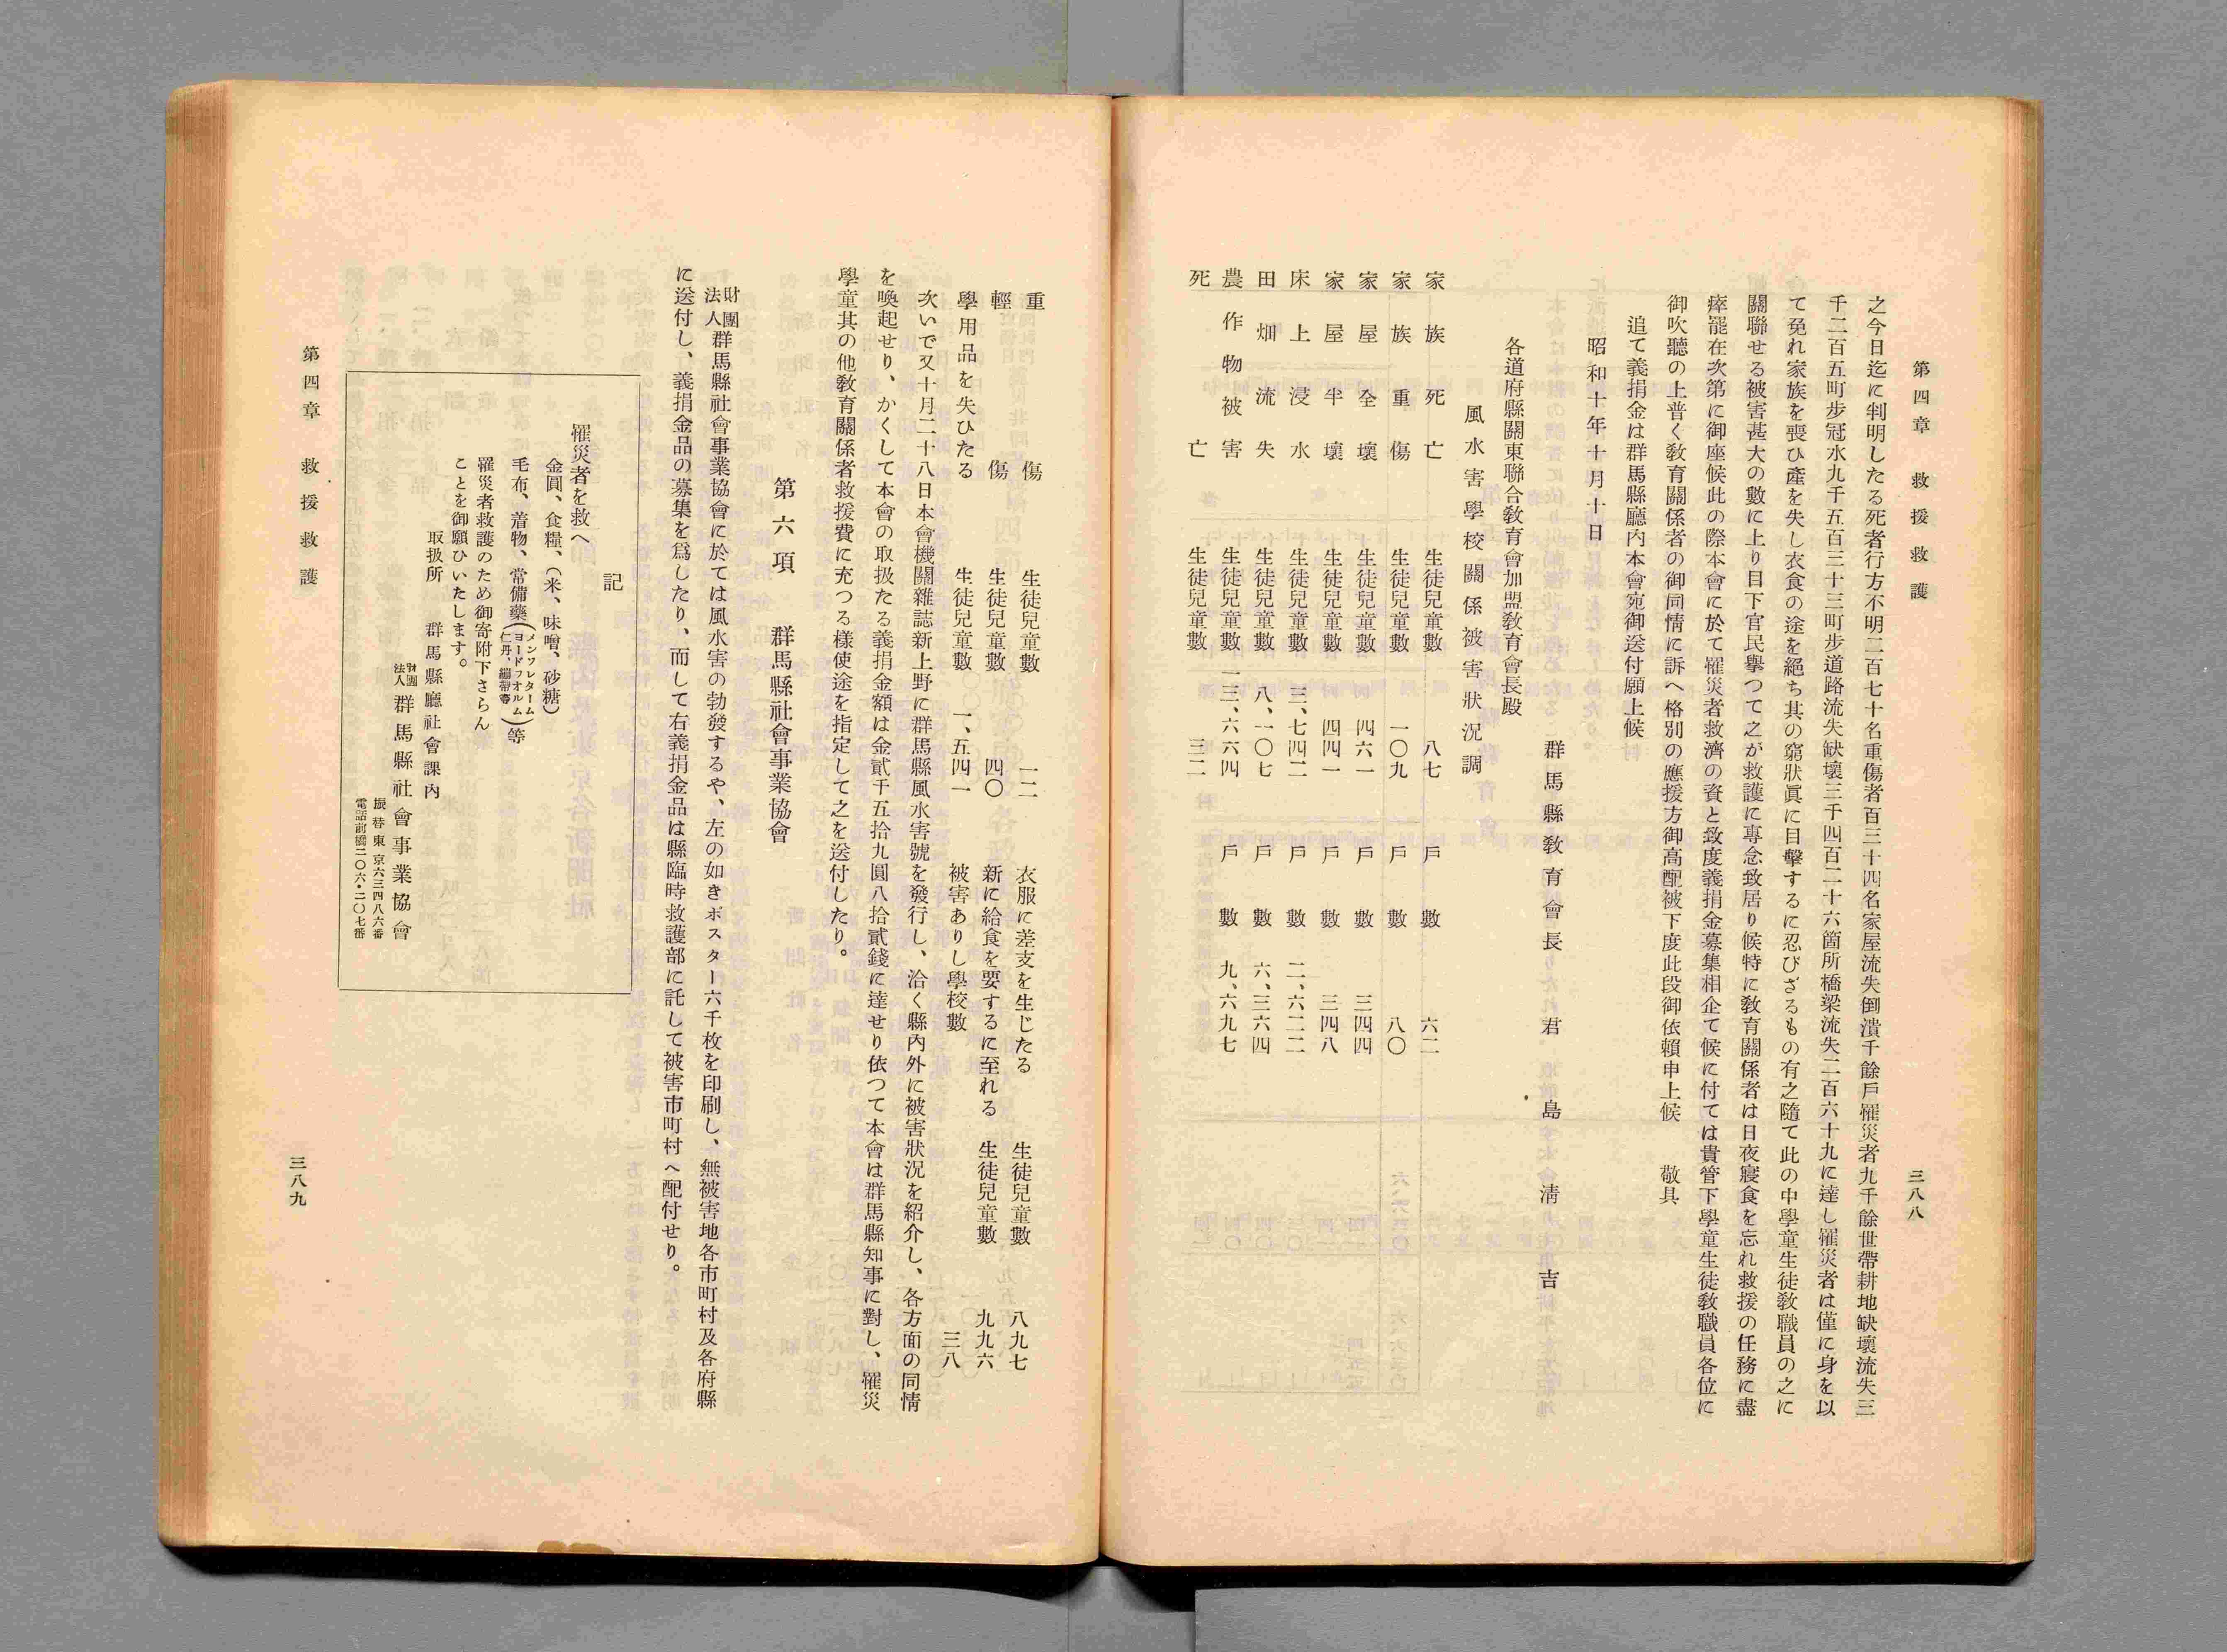 第四章　救援救護　三八八
之今日迄に判明したる死者行方不明二百七十名重傷者百三十四名家屋流失倒潰千餘戶罹災者九千餘世帶耕地缺壞流失三
千二百五町步冠水九千五百三十三町步道路流失缺壞三千四百二十六箇所橋梁流失二百六十九に達し罹災者は僅に身を以
て免れ家族を喪ひ產を失し衣食の途を絕ち其の窮狀眞に目擊するに忍びざるもの有之隨て此の中學童生徒敎職員の之に
關聯せる被害甚大の數に上り目下官民擧つて之が救護に專念致居り候特に敎育關係者は日夜寢食を忘れ救援の任務に盡
瘁罷在次第に御座候此の際本會に於て罹災者救濟の資と致度義捐金募集相企て候に付ては貴管下學童生徒敎職員各位に
御吹聽の上普く敎育關係者の御同情に訴へ格別の應援方御高配被下度此段御依賴申上候　敬具
追て義捐金は群馬縣廳內本會宛御送付願上候
昭和十年十月十日
群馬縣敎育會長　君島淸吉
各道府縣關東聯合敎育會加盟敎育會長殿
風水害學校關係被害狀況調
家族死亡　生徒兒童數　八七　戶數　六二
家族重傷　生徒兒童數　一〇九　戶數　八〇
家屋全壞　生徒兒童數　四六一　戶數　三四四
家屋半壞　生徒兒童數　四四一　戶數　三四八
床上浸水　生徒兒童數　三、七四二　戶數　二、六二二
田畑流失　生徒兒童數　八、一〇七　戶數　六、三六四
農作物被害　生徒兒童數　一三、六六四　戶數　九、六九七
死亡　生徒兒童數　三二
重傷　生徒兒童數　一二　衣服に差支を生じたる　生徒兒童數　八九七
輕傷　生徒兒童數　四〇　新に給食を要するに至れる　生徒兒童數　九九六
學用品を失ひたる　生徒兒童數　一、五四一　被害ありし學校數　三八
次いで又十月二十八日本會機關雜誌新上野に群馬縣風水害號を發行し、洽く縣內外に被害狀況を紹介し、各方面の同情
を喚起せり、かくして本會の取扱たる義捐金額は金貳千五拾九圓八拾貳錢に達せり依つて本會は群馬縣知事に對し、罹災
學童其の他敎育關係者救援費に充つる樣使途を指定して之を送付したり。
第六項　群馬縣社會事業協會
財團法人群馬縣社會事業協會に於ては風水害の勃發するや、左の如きポスター六千枚を印刷し、無被害地各市町村及各府縣
に送付し、義捐金品の募集を爲したり、而して右義捐金品は縣臨時救護部に託して被害市町村へ配付せり。
記
罹災者を救へ
金圓、食糧、（米、味噌、砂糖）
毛布、着物、常備藥（メンフレターム
ヨードフオルム
仁丹、繃帶等）等
罹災者救護のため御寄附下さらん
ことを御願ひいたします。
取扱所　群馬縣廳社會課內
財團法人群馬縣社會事業協會
振替東京六三四八六番
電話前橋二〇六・二〇七番
第四章　救援救護　三八九